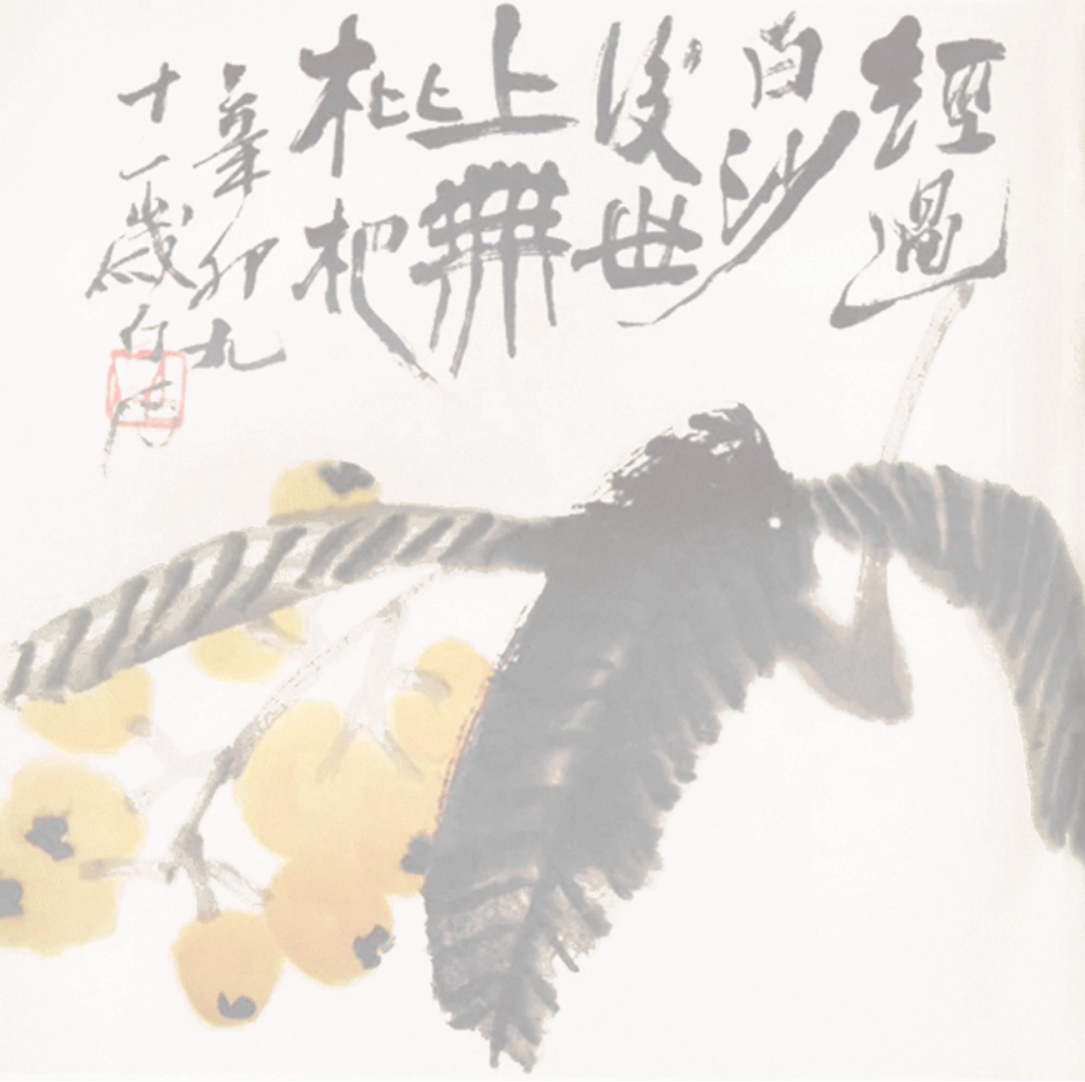 經過
白沙
後世
上無
枇杷
辛卯九
十一歲白石